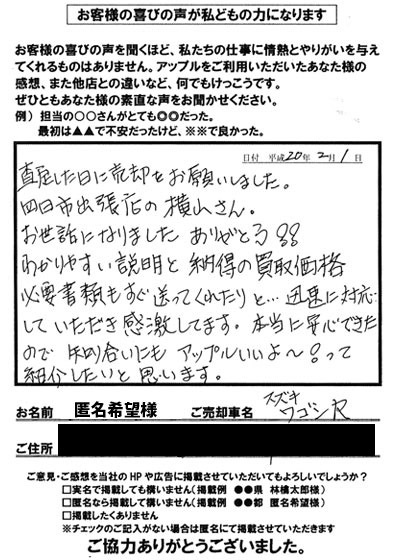 お客様の喜びの声が私どもの力になります
お客様の喜びの声を聞くほど、私たちの仕事に情熱とやりがいを与え
てくれるものはありません。アップルをご利用いただいたあなた様の
感想、また他店との違いなど、何でもけっこうです。
ぜひともあなた様の素直な声をお聞かせください。
例） 担当の○○さんがとても◎◎だった。
最初は▲▲で不安だったけど、※※で良かった。
日付 平成20年2月1日
査定した日に売却をお願いしました。
四日市出張店の横山さん。
お世話になりました ありがとう!!
わかりやすい説明と納得の買取価格
必要書類もすぐ送ってくれたりと…迅速に対応
していただき感激してます。本当に安心できた
ので 知り合いにも アップルいいよ～?って
紹介したいと思います。
お名前 匿名希望様 ご売却車名 スズキ
ワゴンR
ご住所
ご意見・ご感想を当社のHPや広告に掲載させていただいてもよろしいでしょうか？
□実名で掲載しても構いません（掲載例 ●●県 林檎太郎様）
□匿名なら掲載して構いません（掲載例 ●●都 匿名希望様）
□掲載したくありません
※チェックのご記入がない場合は匿名にて掲載させていただきます
ご協力ありがとうございました。